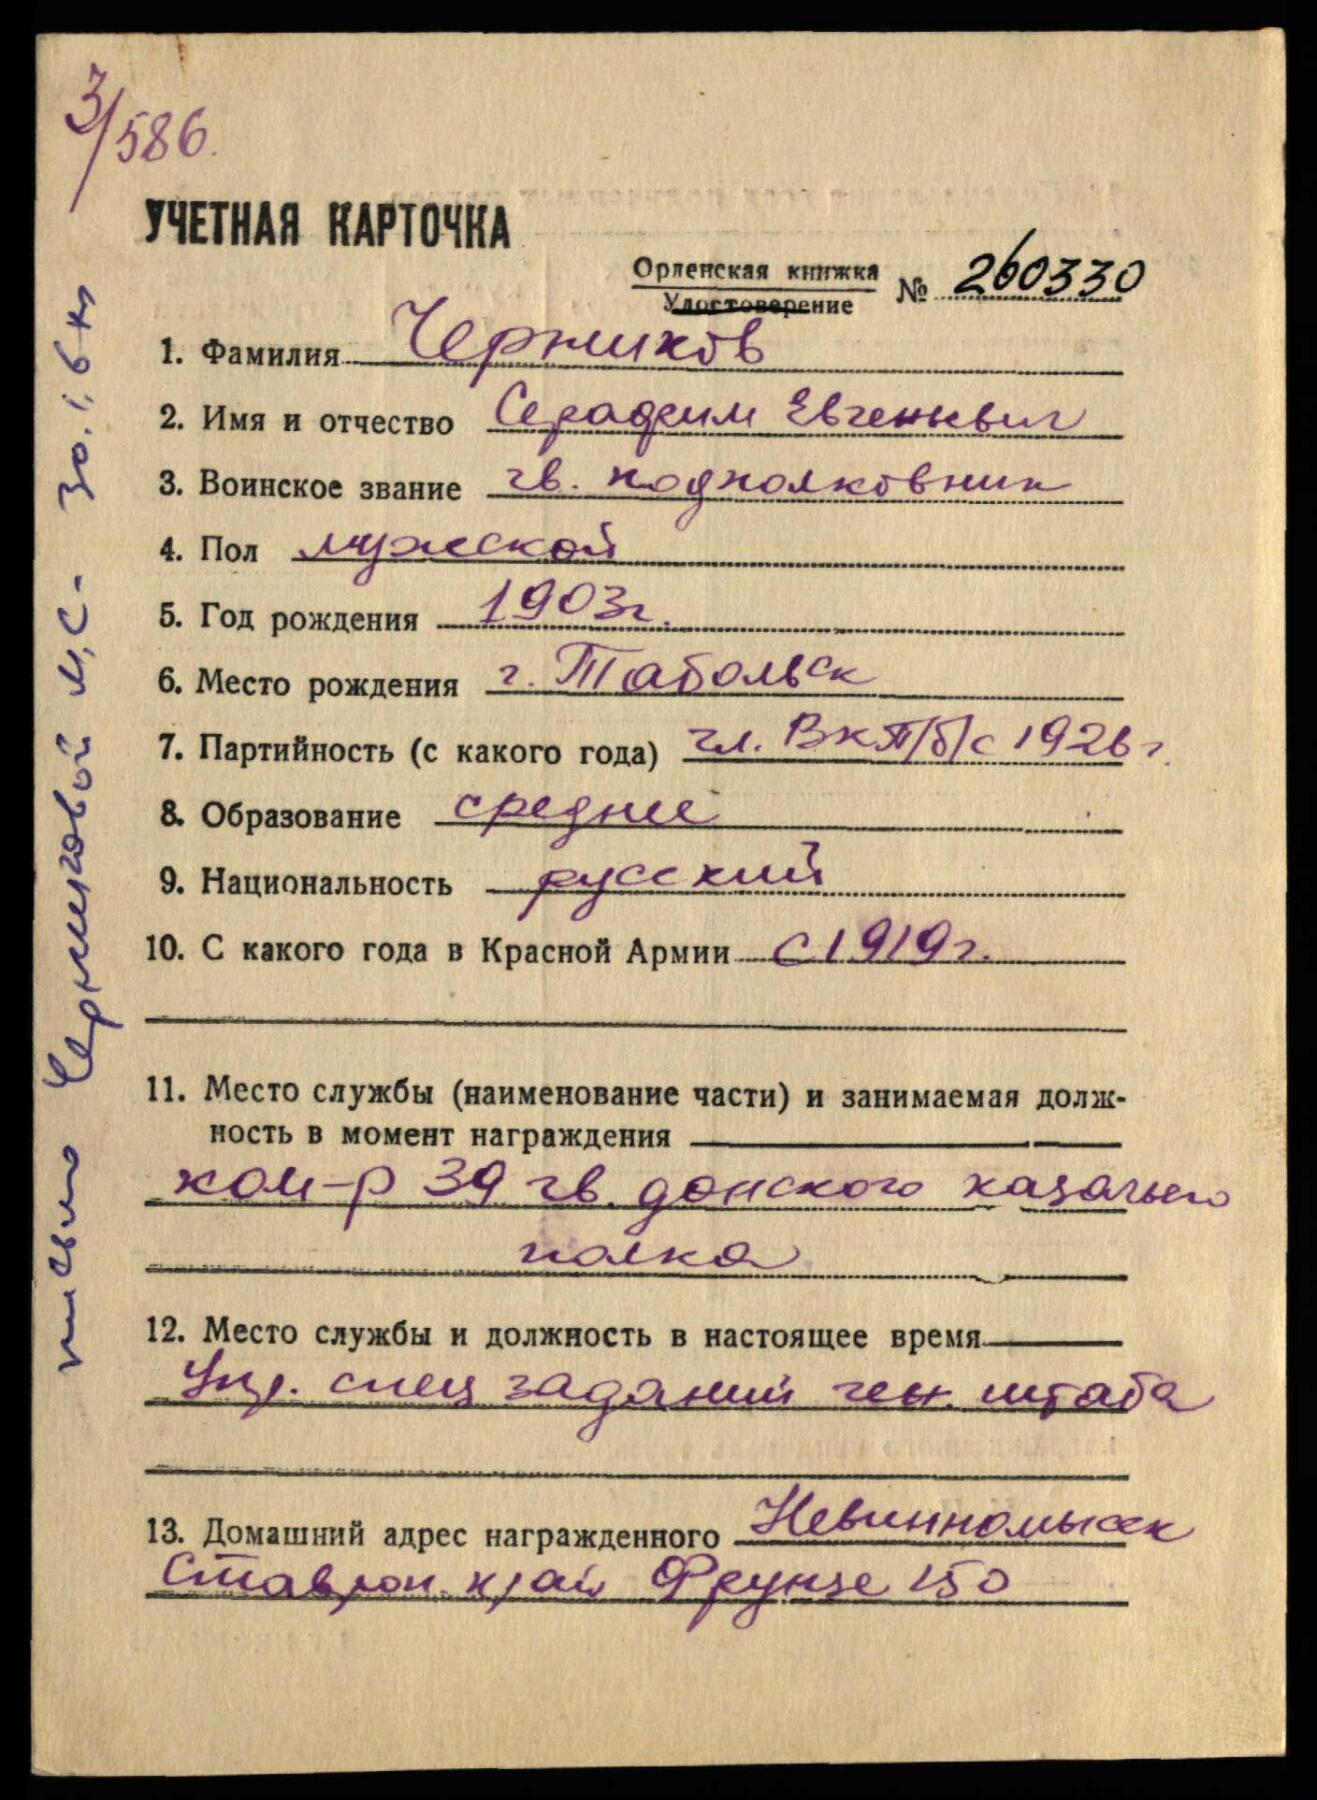 3/586.
УЧЕТНАЯ КАРТОЧКА
Орденская книжка
Удостоверение
№ 260330
1. Фамилия Черников
2. Имя и отчество Серафим Евгеньевич
3. Воинское звание гв. подполковник
4. Пол мужской
5. Год рождения 1903г.
6. Место рождения г. Табольск
7. Партийность (с какого года) чл. ВКП/б/с 1926г.
8. Образование среднее
9. Национальность русский
10. С какого года в Красной Армии с 1919г.
11. Место службы (наименование части) и занимаемая долж-
ность в момент награждения
ком-р 39 гв. донского казачьего
полка
12. Место службы и должность в настоящее время
Упр. спец заданий ген. штаба
13. Домашний адрес награжденного Невинномысск
Ставроп. край Фрунзе 150
письмо Черниговой М,С-